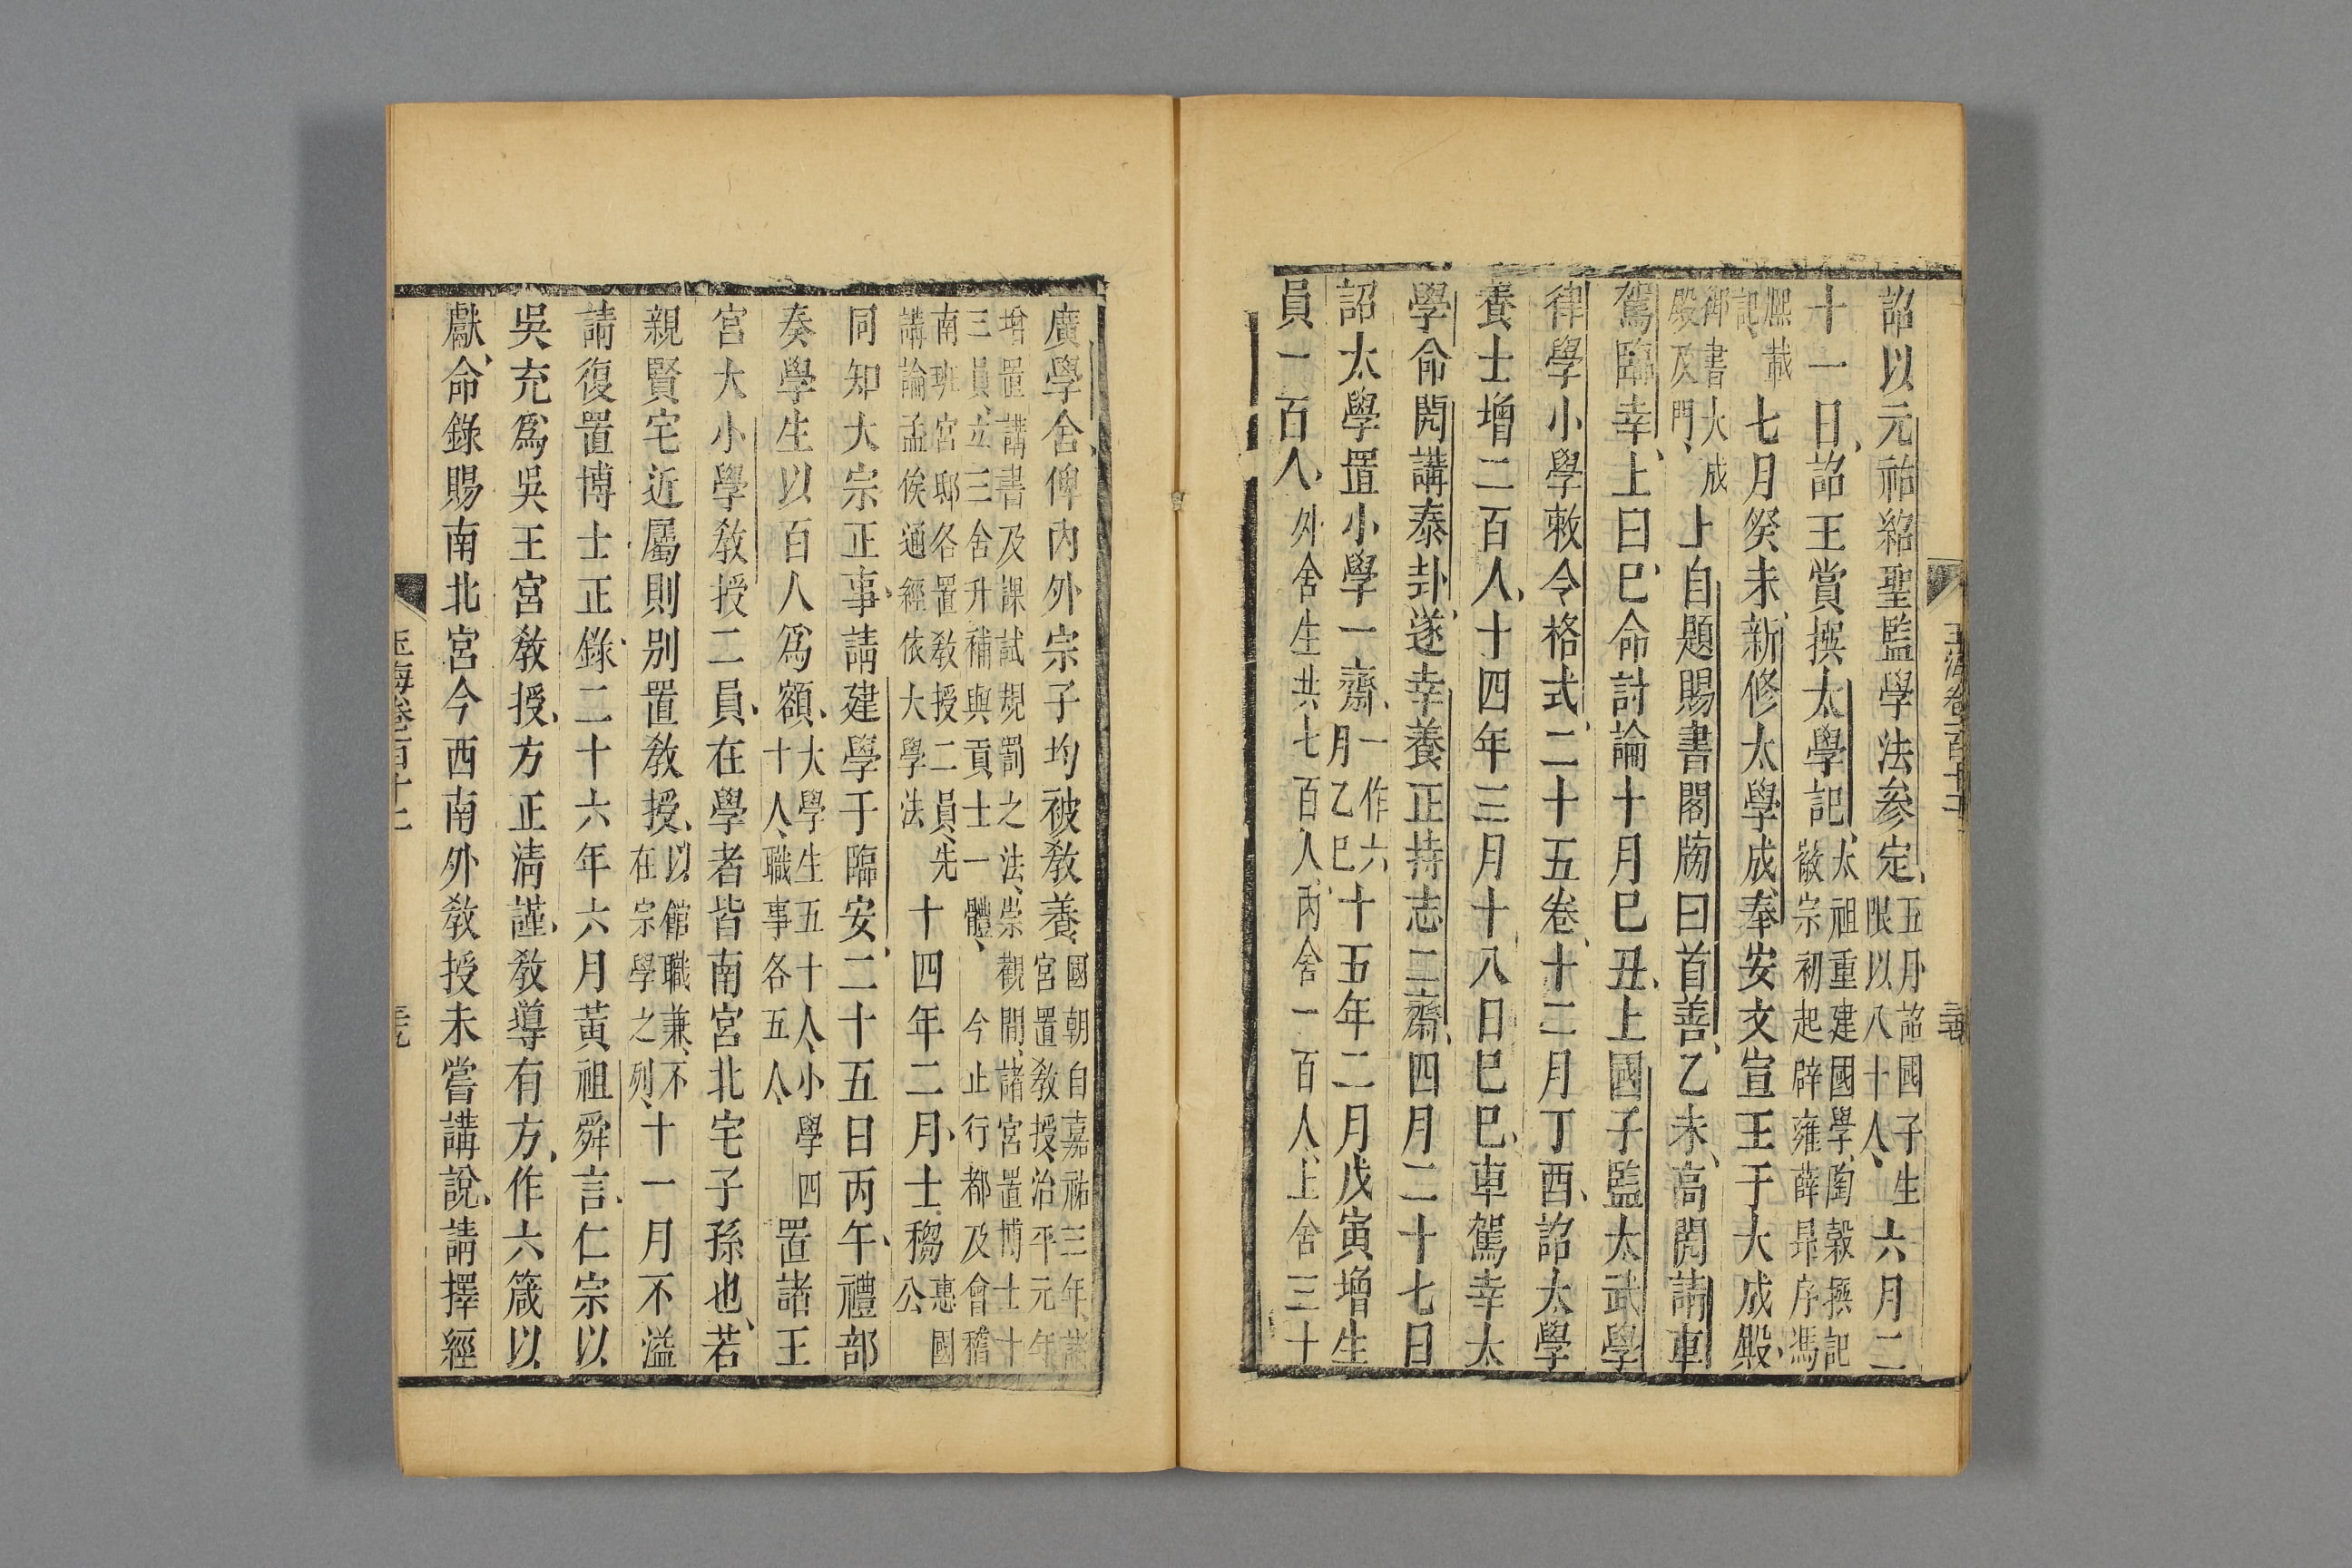 詔以元祐紹聖監學法參定五月詔國子生限以八十人六月二
十一日詔王賞撰太學記太祖重建國學陶穀撰記徽宗初起辟雍薛昂序馮
熙載記七月癸未新修太學成奉安文宣王于大成殿
御書大成殿及門上自題賜書閣牓曰首善乙未高閌請車
駕臨幸上曰已命討論十月己丑上國子監太武學
律學小學敕令格式二十五卷十二月丁酉詔太學
養士增二百人十四年三月十八日己巳車駕幸太
學命閌講泰卦遂幸養正持志二齋四月二十七日
詔太學置小學一齋一作六月乙巳十五年二月戊寅增生
員一百人外舍生共七百人內舍一百人上舍三十
玉海卷一百十二
廣學舍俾內外宗子均被教養國朝自嘉祐三年諸宮置教授治平元年
增置講書及課試規罰之法崇觀間諸宮置博士十三員立三舍升補與貢士一體今止行都及會稽
南班宮邸各置教授二員先講論孟俟通經依大學法十四年二月士㒞惠國公
同知大宗正事請建學于臨安二十五日丙午禮部
奏學生以百人為額大學生五十人小學四十人職事各五人置諸王
宮大小學教授二員在學者皆南宮北宅子孫也若
親賢宅近屬則别置教授以館職兼不在宗學之列十一月不溢
請復置博士正錄二十六年六月黃祖舜言仁宗以
吳充為吳王宮教授方正清謹教導有方作六箴以
獻命錄賜南北宮今西南外教授未嘗講說請擇經
玉海卷一百十二